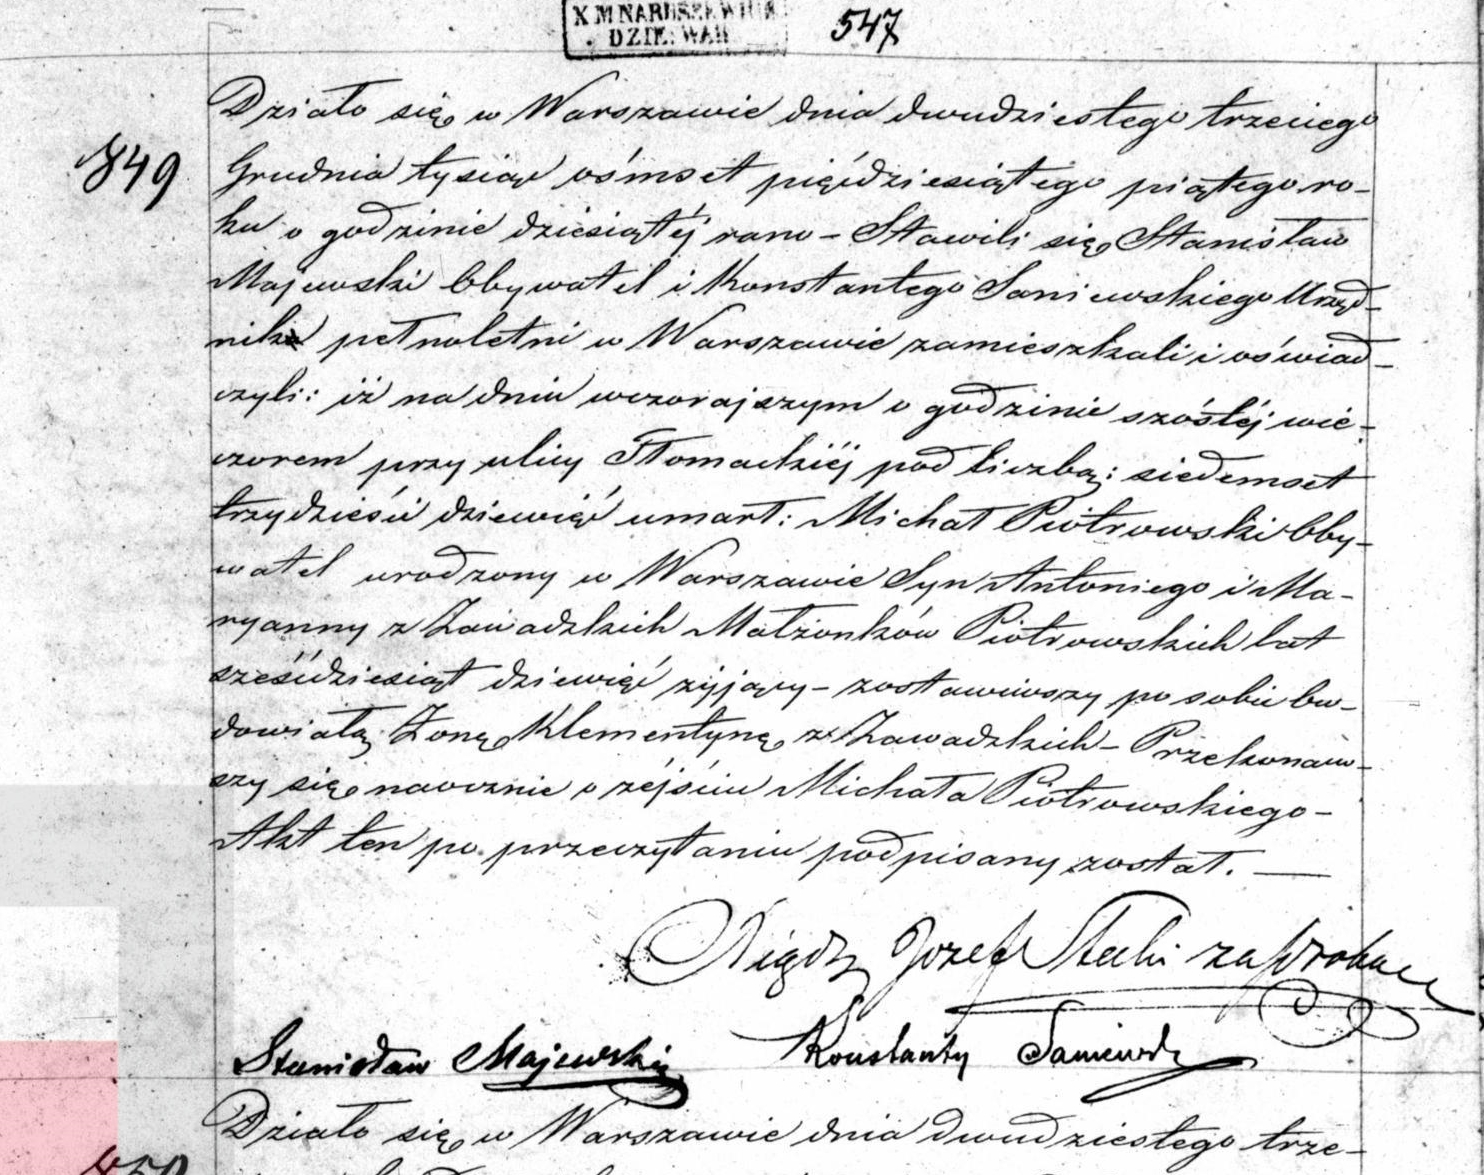 X M NARUSZEWICZA
DZIE: WAR
547
849
Działo się w Warszawie dnia dwudziestego trzeciego
Grudnia tysiąc ośmset pięćdziesiątego piątego ro-
ku o godzinie dziesiątéj rano – Stawili się Stanisław
Majewski Obywatel i Konstantego Saniewskiego Urzęd-
nik pełnoletni w Warszawie zamieszkali i oświad-
czyli: iż na dniu wczorajszym o godzinie szóstéj wie-
czorem przy ulicy Tłomackiéj pod liczbą: siedemset
trzydzieści dziewięć umarł: Michał Piotrowski Oby-
watel urodzony w Warszawie Syn Antoniego i Ma-
ryanny z Zawadzkich Małżonków Piotrowskich lat
sześćdziesiąt dziewięć żyjący – zostawiwszy po sobie ow-
dowiałą Żonę Klementynę z Zawadzkich – Przekonaw-
szy się naocznie o zejściu Michała Piotrowskiego –
Akt ten po przeczytaniu podpisany został. —
Józef Stecki za
Stanisław Majewski Konstanty Saniewski
Działo się w Warszawie dnia dwudziestego trze-
850